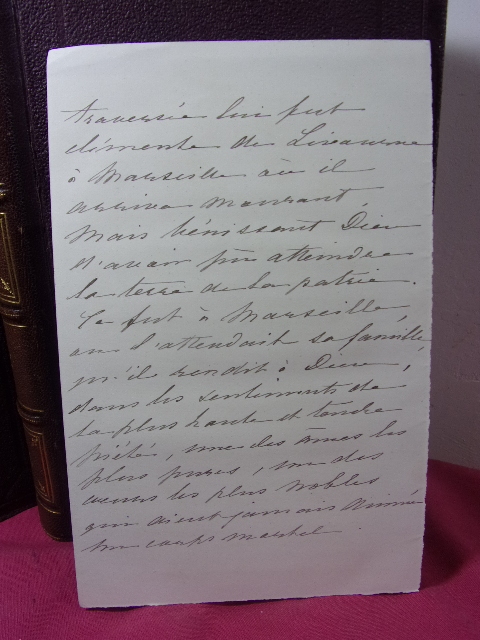 traversée lui fut
clémente de Livourne
à Marseille où il
arriva mourant,
Mais bénissant Dieu
d'avoir pu atteindre
la terre de la patrie.
Ce fut à Marseille,
où l'attendait sa famille,
qu'il rendit à Dieu,
dans les sentiments de
la plus haute et tendre
piété, une des âmes les
plus pures, un des
cœurs les plus nobles
qui aient jamais animé
un corps mortel.